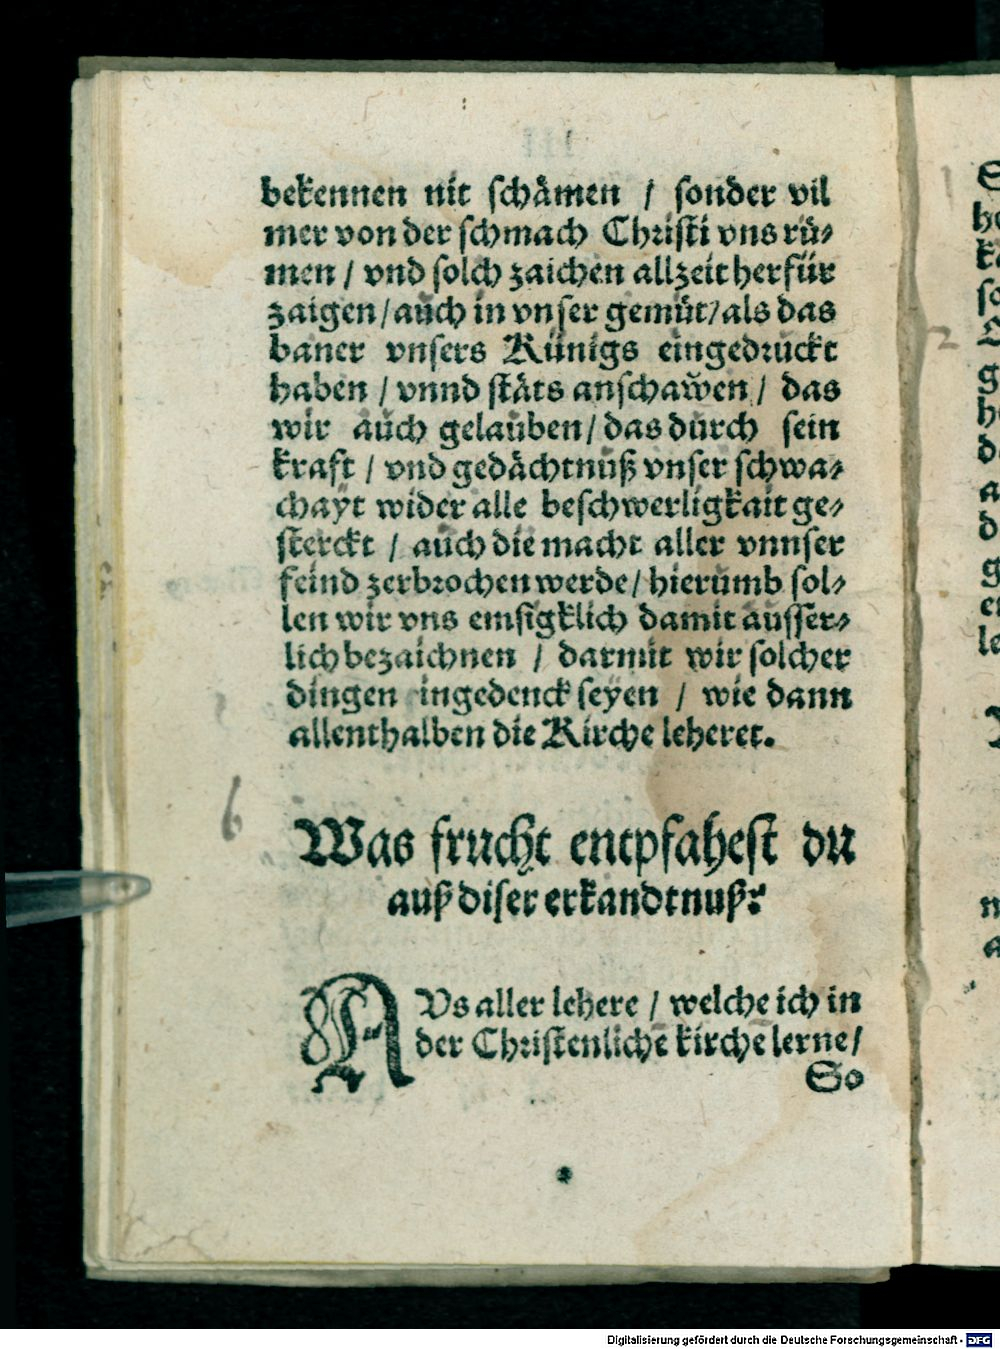 bekennen nit schämen / sonder vil
mer von der schmach Christi vns rü⸗
men / vnd solch zaichen allzeit herfür
zaigen / auch in vnser gemüt / als das
baner vnsers Künigs eingedruckt
haben / vnnd stäts anschawen / das
wir auch gelauben / das durch sein
kraft / vnd gedächtnuß vnser schwa⸗
chayt wider alle beschwerligkait ge⸗
sterckt / auch die macht aller vnnser
feind zerbrochen werde / hierumb sol⸗
len wir vns emsigklich damit ausser⸗
lich bezaichnen / darmit wir solcher
dingen ingedenck seyen / wie dann
allenthalben die Kirche leheret.
6
Was frucht entpfahest du
auß diser erkandtnuß?
AVs aller lehere / welche ich in
der Christenlichē kirchē lerne /
So
2
Digitalisierung gefördert durch die Deutsche Forschungsgemeinschaft - DFG